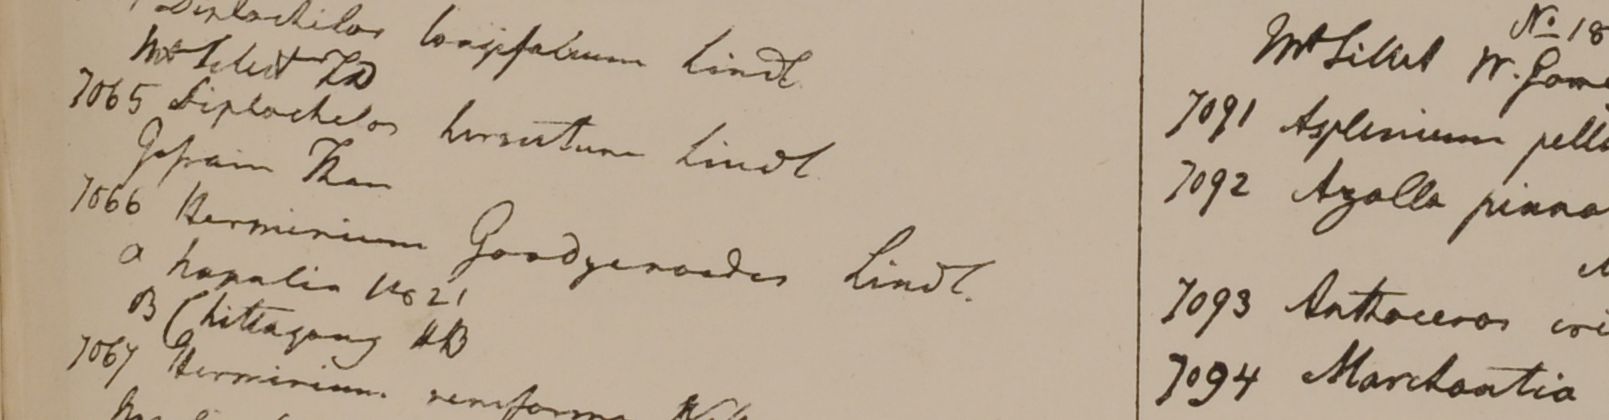 Diplochilos longifolium Lindl.
Mt Silhet FD
7065 Diplochilos hirsutum Lindl.
7066 Herminium Goodyeroides Lindl.
a Napalia 1821
B Chittagong HB
7067 Herminium reniforme
No 18
Mt Silhet W. Gome
7091 Asplenium pellu
7092 Azolla pinna
7093 Anthoceros cri
7094 Marchantia